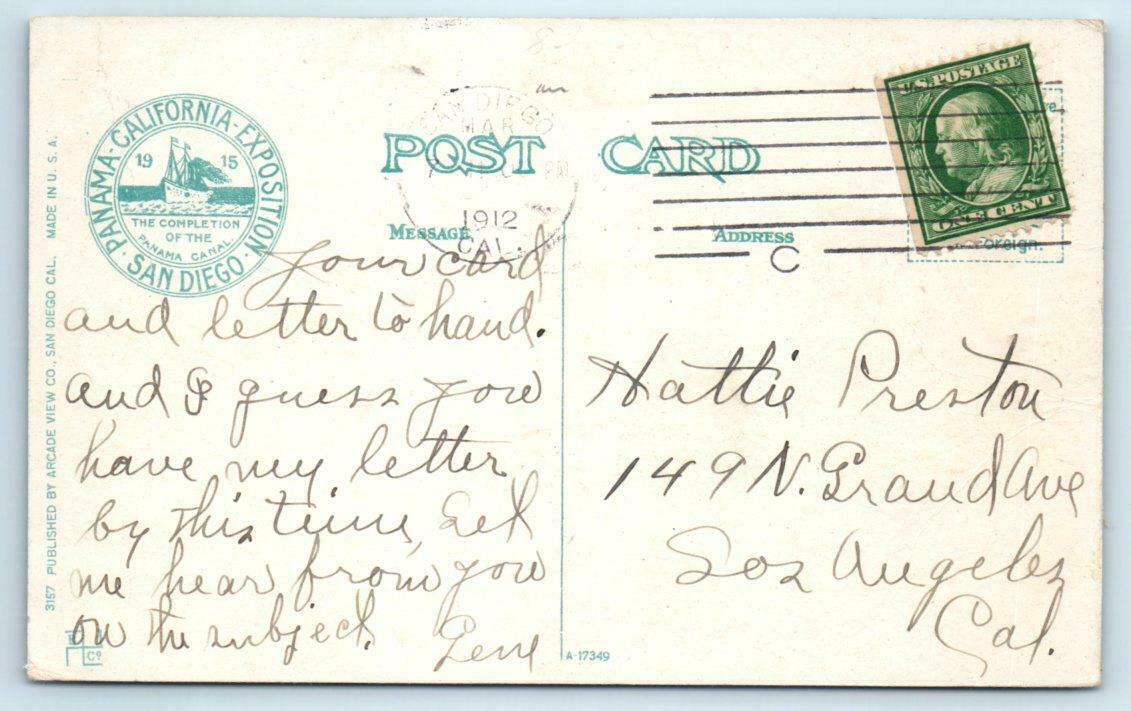 PANAMA-CALIFORNIA-EXPOSITION
1915
THE COMPLETION
OF THE
PANAMA CANAL
SAN DIEGO
3157 PUBLISHED BY ARCADE VIEW CO., SAN DIEGO CAL. MADE IN U. S. A.
POST CARD
SAN DIEGO
MAR
PM
1912
CAL.
C
U.S. POSTAGE
ONE CENT
Foreign.
Message
Address
Your card
and letter to hand.
and I guess you
have my letter
by this time, Let
me hear from you
on the subject.
Gene
Hattie Preston
149 N. Grand Ave
Los Angeles
Cal.
Co
A-17349